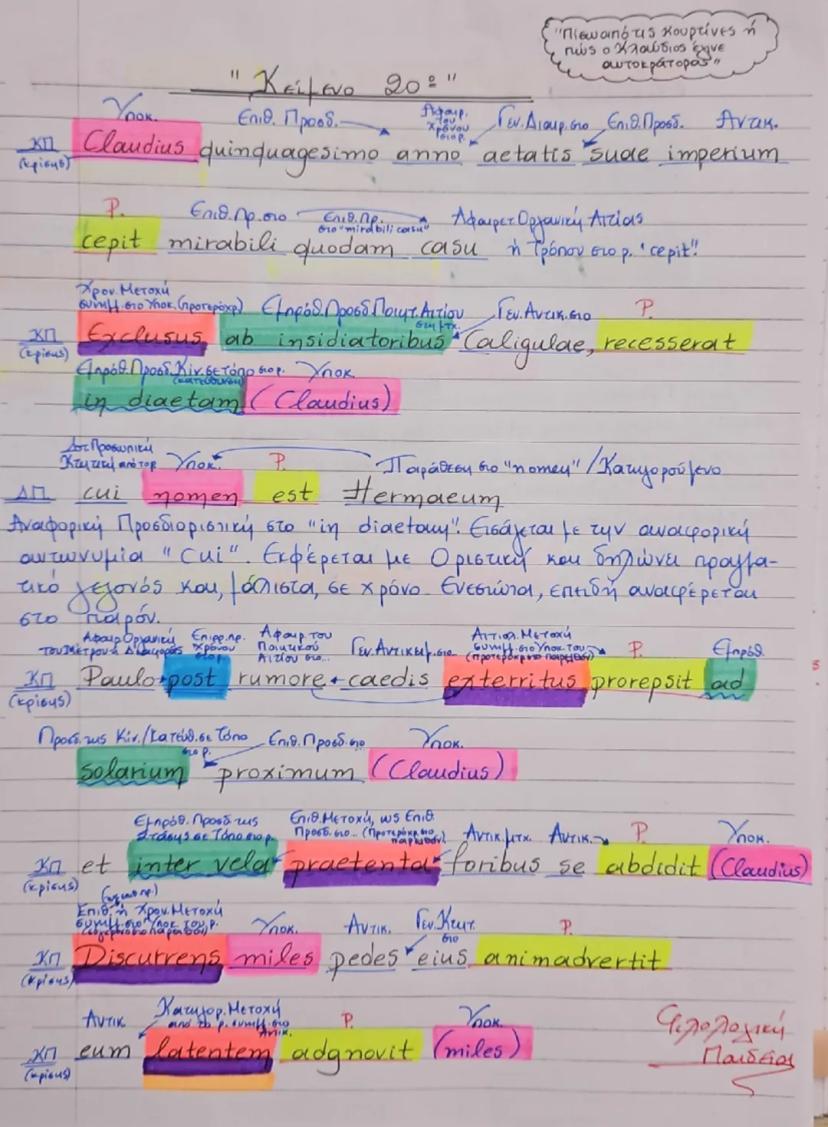 "Πίσω από τις κουρτίνες ή
πώς ο Κλαύδιος έγινε
αυτοκράτορας"
"Κείμενο 20º"
Υποκ. Επιθ. Προσδ. Αφαιρ. του χρόνου στο ρ. Γεν. Διαιρ. στο Επιθ. Προσδ. Αντικ.
ΚΠ (κρίσης) Claudius quinquagesimo anno aetatis suae imperium
Ρ. Επιθ. Πρ. στο Επιθ. Πρ. στο "mirabili casu" Αφαιρετ. Οργανική Αιτίας
cepit mirabili quodam casu ή Τρόπου στο ρ. "cepit".
Χρον. Μετοχή συνημ. στο Υποκ. (προτερόχρ) Εμπρόθ. Προσδ. Ποιητ. Αιτίου στη μτχ. Γεν. Αντικ. στο Ρ.
ΚΠ (κρίσης) Exclusus ab insidiatoribus Caligulae, recesserat
Εμπρόθ. Προσδ. Κίν. σε τόπο στο ρ. (κατεύθυνση) Υποκ
in diaetam (Claudius)
Δοτ. Προσωπική Κτητική από το ρ Υποκ. Ρ. Παράθεση στο "nomen" / Κατηγορούμενο
ΔΠ cui nomen est Hermaeum
Αναφορική Προσδιοριστική στο "in diaetam". Εισάγεται με την αναφορική
αντωνυμία "cui". Εκφέρεται με Οριστική και δηλώνει πραγμα-
τικό γεγονός και, μάλιστα, σε χρόνο Ενεστώτα, επειδή αναφέρεται
στο παρόν.
Αφαιρ. Οργανική του Μέτρου ή Διαφοράς Επιρρ. πρ. Χρόνου στο ρ. Αφαιρ του Ποιητικού Αιτίου στο... Γεν. Αντικειμ. στο Αιτιολ. Μετοχή συνημ. στο Υποκ του ρ. Ρ. Εμπρόθ.
ΚΠ (κρίσης) Paulo post rumore caedis exterritus prorepsit ad
Προσδ. της Κίν./Κατεύθ. σε Τόπο στο ρ. Επιθ. Προσδ. στο Υποκ.
solarium proximum (Claudius)
Εμπρόθ. Προσδ της Στάσης σε Τόπο στο ρ. Επιθ. Μετοχή, ως Επιθ. Προσδ. στο... Αντικ. μτχ. Αντικ. Ρ. Υποκ.
ΚΠ (κρίσης) et inter vela praetenta foribus se abdidit (Claudius)
Επιθ. ή Χρον. Μετοχή συνημ. στο Υποκ του ρ. Υποκ. Αντικ. Γεν. Κτητ. στο Ρ.
ΚΠ (κρίσης) Discurrens miles pedes eius animadvertit
Αντικ. Κατηγορ. Μετοχή από το ρ. συνημ. στο Αντικ. Ρ. Υποκ.
ΚΠ (κρίσης) eum latentem adgnovit (miles)
Φιλολογική
Παιδεία